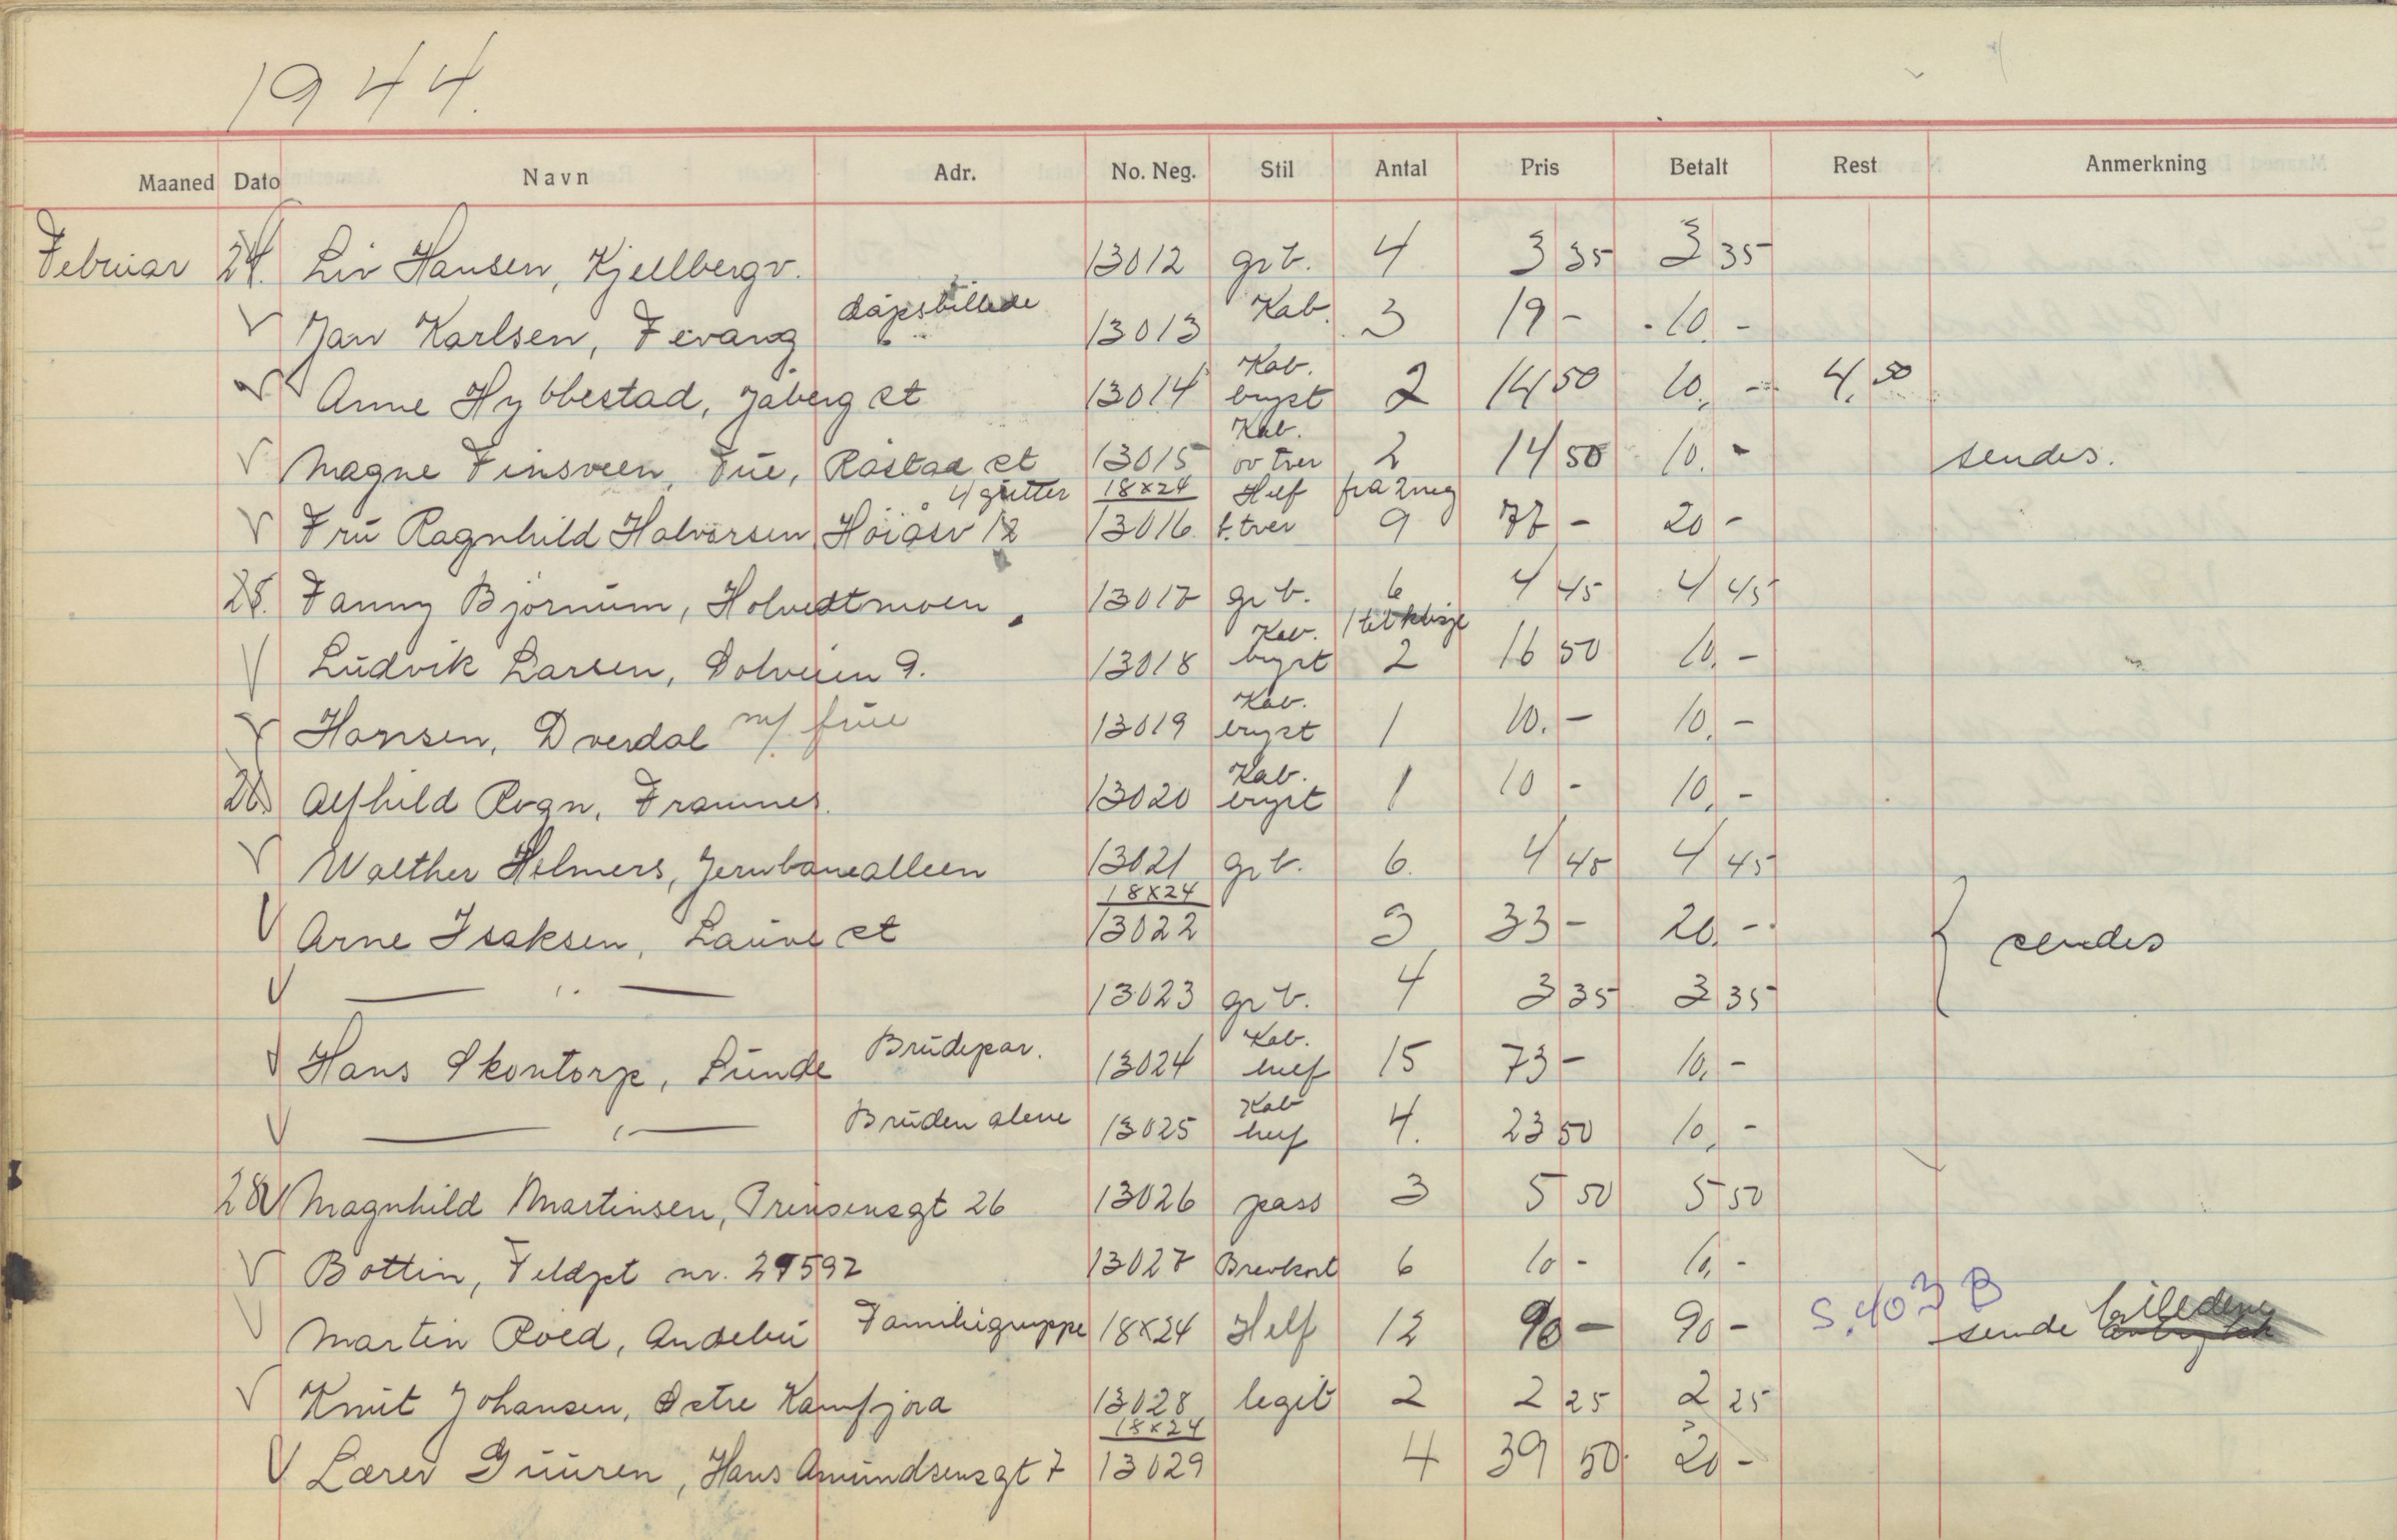 1944.
Maaned Dato Navn Adr. No. Neg. Stil Antal Pris Betalt Rest Anmerkning
Februar 24. Liv Hansen, Kjellbergv. 13012 gr b. 4 3 35 3 35
Jan Karlsen, Fevang dåpsbillede 13013 Kab. 3 19 - 10. -
Kab.
Anne Hybbestad, Jåberg st 13014 bryst 2 14 50 10. - 4,50
Kab.
Magne Finsveen, Fue, Råstad st 13015 ov tver 2 14 50 10. - sendes.
4 gutter 18x24 Helf fra 2 neg
Fru Ragnhild Halvorsen Höiåsv 12 13016 f. tver 9 77 - 20 -
25. Fanny Björnum, Holvedtmoen. 13017 gr b. 6 4 45 4 45
Kab. 1 til klisje
Ludvik Larsen, Dolveien 9. 13018 bryst 2 16 50 10. -
Kab.
Hansen, Dverdal m/ frue 13019 bryst 1 10. - 10. -
Kab.
26. Alfhild Rogn, Framnes. 13020 bryst 1 10 - 10. -
Walther Helmers, Jernbanealleen 13021 gr b. 6. 4 45 4 45
18x24
Arne Isaksen, Lauve st 13022 3 33 - 20. - sendes
— " — 13023 gr b. 4 3 35 3 35
Brudepar. Kab.
Hans Skontorp, Sunde 13024 helf 15 73 - 10. -
Kab
— " — Bruden alene 13025 helf 4. 23 50 10. -
28 Magnhild Martinsen, Prinsensgt 26 13026 pass 3 5 50 5 50
Bottin, Feldpt nr. 29592 13027 Brevkort 6 10 - 10. -
S.403 B
Martin Roed, Andebu Familiegruppe 18x24 Helf 12 90 - 90 - sende billedene
Knut Johansen, Östre Kamfjora 13028 legit 2 2 25 2 25
18x24
Lærer Guuren, Hans Amundsensgt 7 13029 4 39 50 20 -